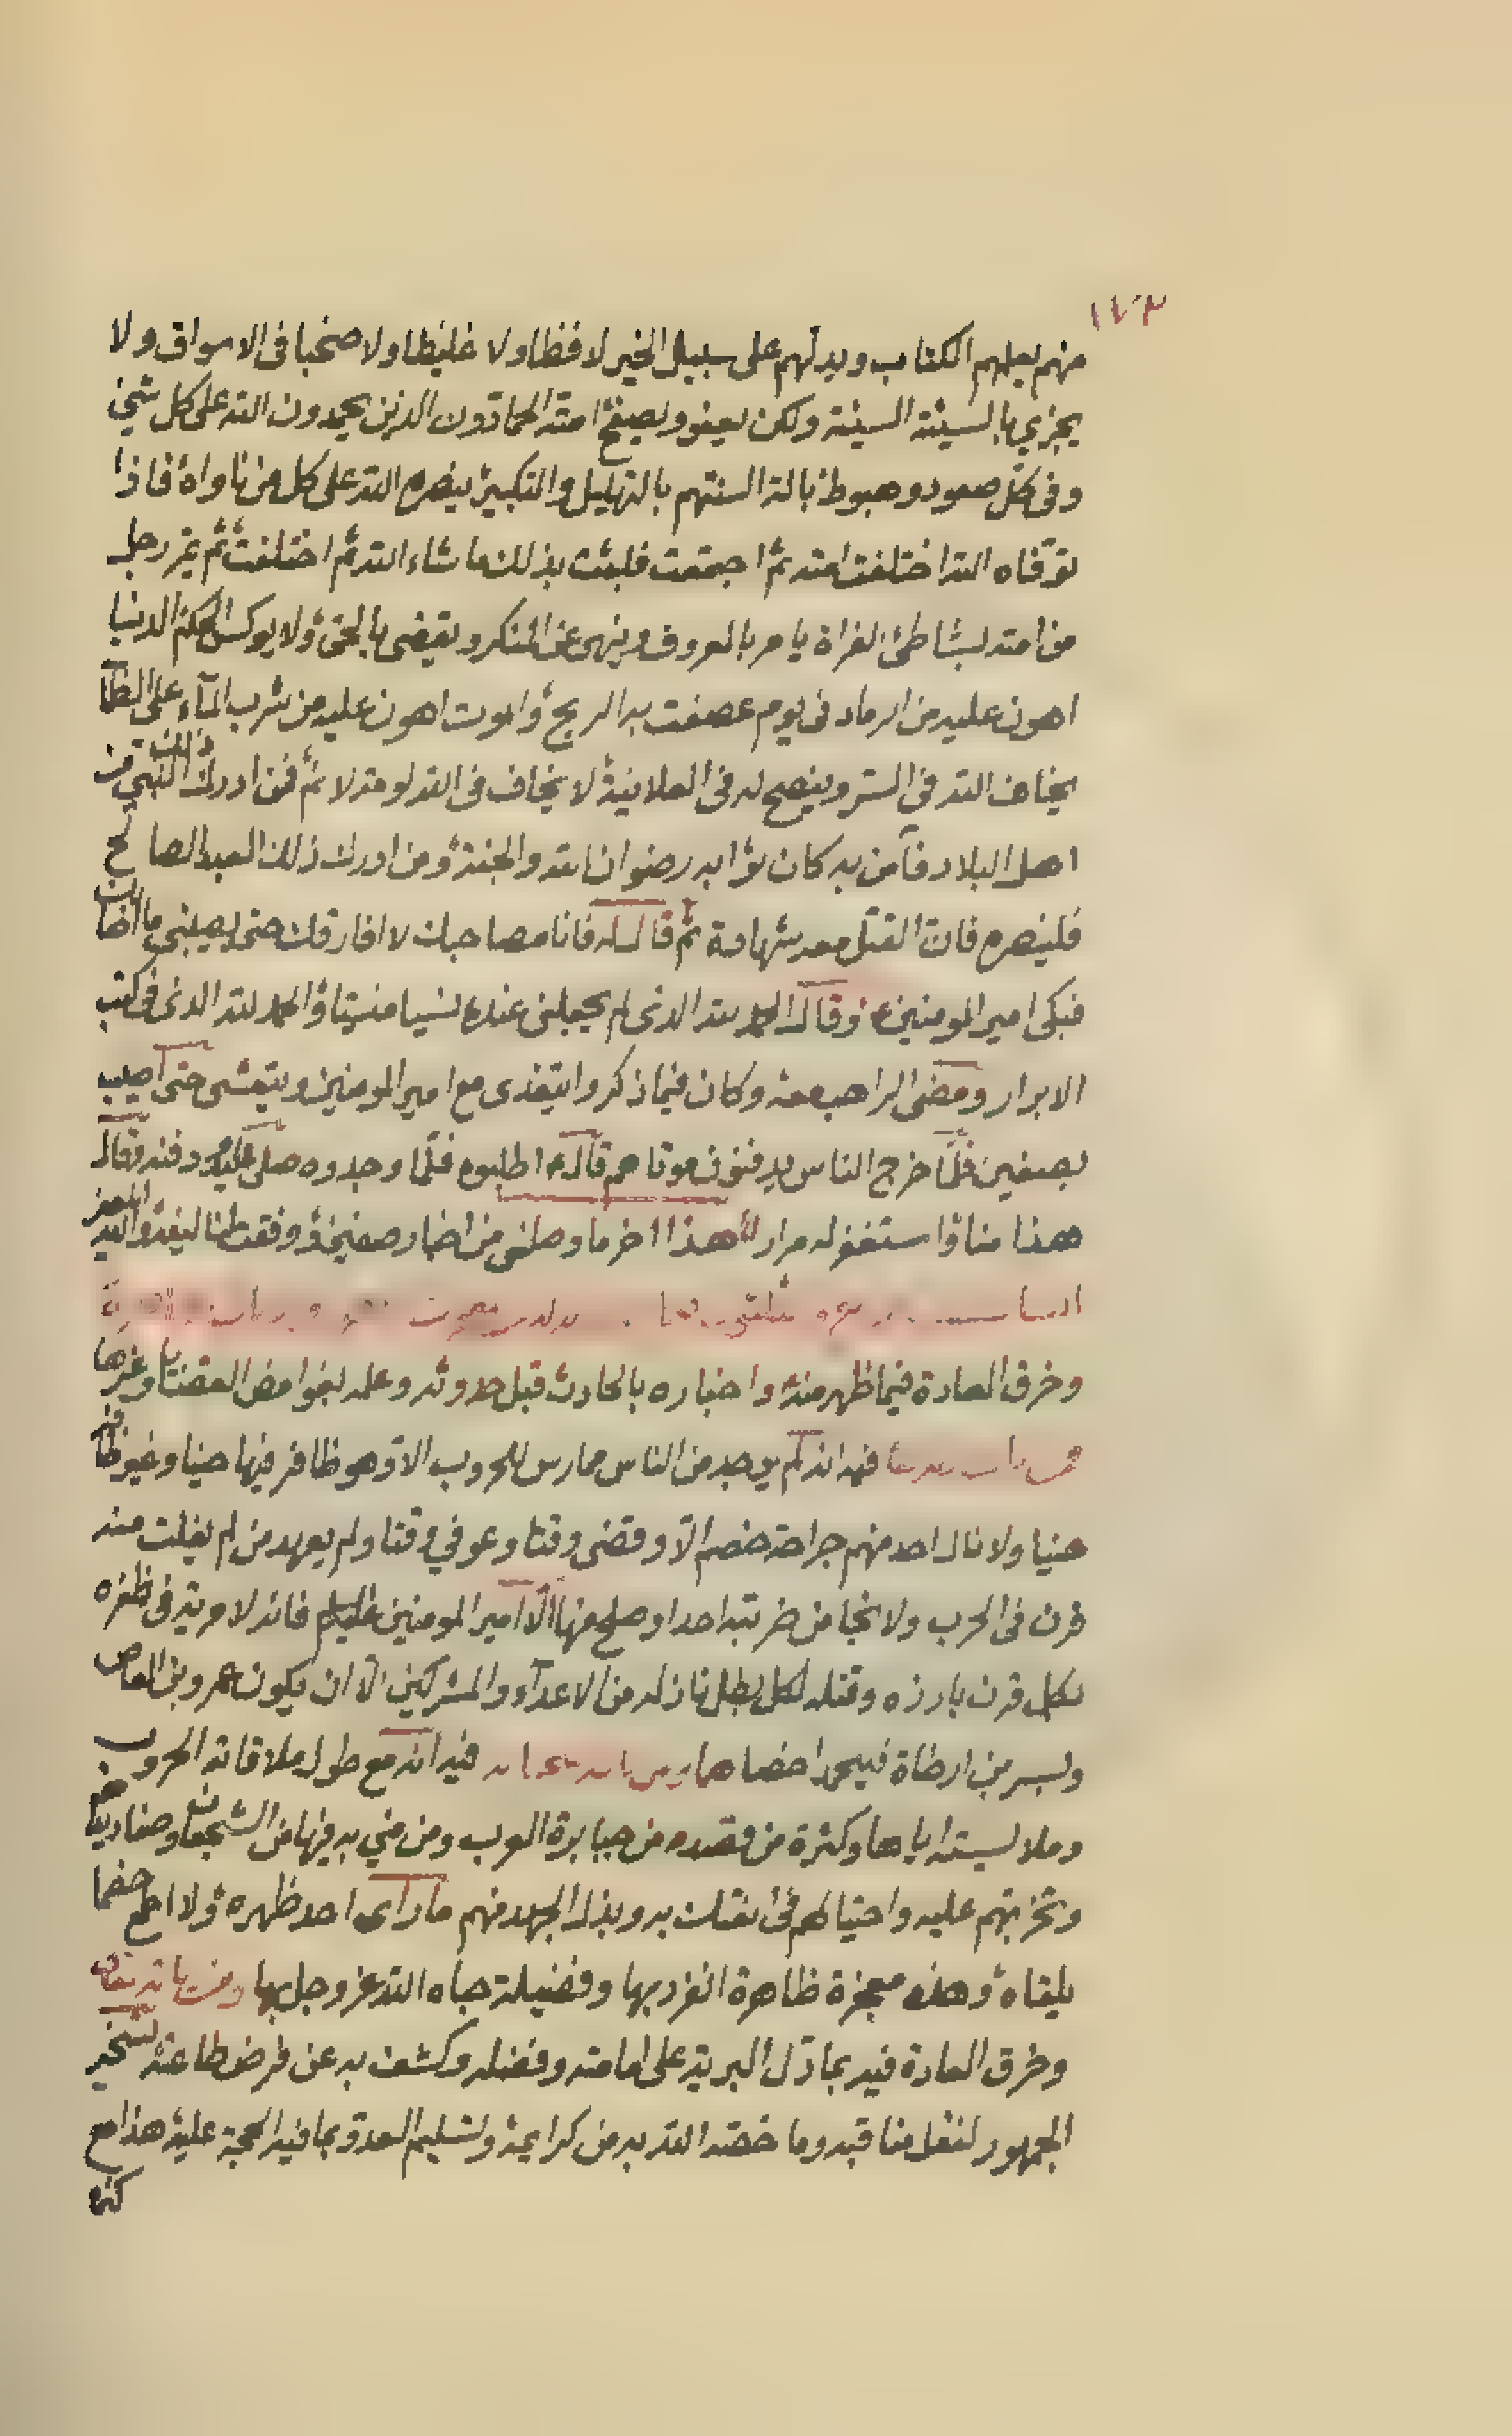 ١٧٣
منهم يعلمهم الكتاب ويدلهم على سبيل الخير لا فظا ولا غليظا ولا صخبا في الاسواق ولا
يجزي بالسيئة السيئة ولكن يعفو ويصفح امته الحمادون الذين يحمدون الله على كل شيئ
وفي كل صعود وهبوط بالة السنتهم بالتهليل والتكبير ينصره الله على كل من ناواه فاذا
توفاه الله اختلفت امته ثم اجتمعت فلبثت بذلك ما شاء الله ثم اختلفت ثم يمر رجل
من امته بشاطئ الفراة يامر بالمعروف وينهى عن المنكر ويقضى بالحق ولا يوكس الحكم الدنيا
اهون عليه من الرماد في يوم عصفت به الريح والموت اهون عليه من شرب المآء على الظمآ
يخاف الله في السر وينصح له في العلانية لا يخاف في الله لومة لائم فمن ادرك ذلك النبي من
اهل البلاد فآمن به كان ثوابه رضوان الله والجنة ومن ادرك ذلك العبد الصالح
فلينصره فان القتل معه شهادة ثم قال له فانا مصاحبك لا افارقك حتى يصيبني ما اصابك
فبكى امير المومنين ع وقال الحمد لله الذى لم يجعلني عنده نسيا منسيا والحمد لله الذى في كتب
الابرار ومضى الراهب معه وكان فيما ذكروا يتغدى مع امير المومنين ويتعشى حتى اصيب
بصفين فلما خرج الناس يدفنون موتاهم قال ع اطلبوه فلما وجدوه صلى عليه ودفنه فقال
هذا منا واستغفر له مرارا هذا اخر ما وصلني من اخبار صفين
وخرق العادة فيما ظهر منه واخباره بالحادث قبل حدوثه وعلمه بغوامض القضايا وغيرها
فمنه انه لم يوجد من الناس ممارس للحروب الا وهو ظافر فيها حينا وغير ظافر
حينا ولا نال احد منهم جراحة خصم الا وقضى وقتا وعوفي وقتا ولم يعهد من لم يفلت منه
قرن في الحرب ولا نجا من ضربته احد اوصلح منها الا امير المومنين عليه السلم فانه لا مرية في ظفره
بكل قرن بارزه وقتله لكل بطل نازله من الاعدآء والمشركين الا ان يكون عمرو بن العاص
وبسر بن ارطاة فيه انه مع طول ملاقاته الحروب
وملابسته اياها وكثرة من قصده من جبابرة العرب ومن مني به فيها من الشجعان وصناديد
وتحزبهم عليه واحتيالهم في الفتك به وبذل الجهد منهم ما راى احد ظهره ولا احجم خصما
يلقاه وهذه معجزة ظاهرة انفرد بها وفضيلة حباه الله عز وجل بها
وخرق العادة فيه بما دل البرية على امامته وفضله وكشف به عن فرض طاعته تسخير
الجمهور لنقل مناقبه وما خصه الله به من كرايمه وتسليم العدو بما فيه الحجة عليه هذا مع
كثرة